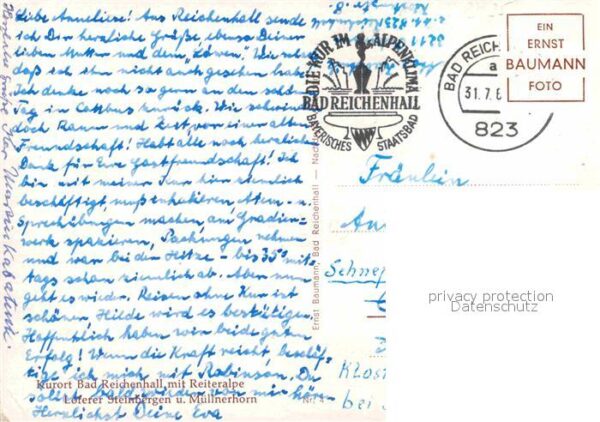 Liebe Anneliese! Aus Reichenhall sende
ich Dir herzliche Grüße ebenso Deiner
lieben Mutter und dem „Löwen". Wie schade
daß ich ihn nicht auch gesehen habe.
Ich denke noch so gern an den schönen
Tag in Cottbus zurück. Wie schwinden
doch Raum und Zeit vor einer alten
Freundschaft! Habt alle noch herzlichen
Dank für Eure Gastfreundschaft! Ich
bin mit meiner Kur hier ziemlich
beschäftigt, muß inhalieren, Atem- u.
Sprechübungen machen, am Gradier-
werk spazieren, Packungen nehmen
und war bei der Hitze - bis 35° mit-
tags schon ziemlich ab. Aber nun
geht es wieder. Reisen ohne Kur ist
schöner, Hilde wird es bestätigen.
Hoffentlich haben wir beide guten
Erfolg! Wenn die Kraft reicht beschäf-
tige ich mich mit Robinson. Du
sollst bald wieder von mir hören
Herzlichst Deine Eva
Kurort Bad Reichenhall mit Reiteralpe
Loferer Steinbergen u. Müllnerhorn
Ernst Baumann, Bad Reichenhall
DIE KUR IM ALPENKLIMA
BAD REICHENHALL
BAYERISCHES STAATSBAD
BAD REICH
a
31.7.6
823
EIN
ERNST
BAUMANN
FOTO
Fräulein
An
Schnep
Klost
bei
privacy protection
Datenschutz